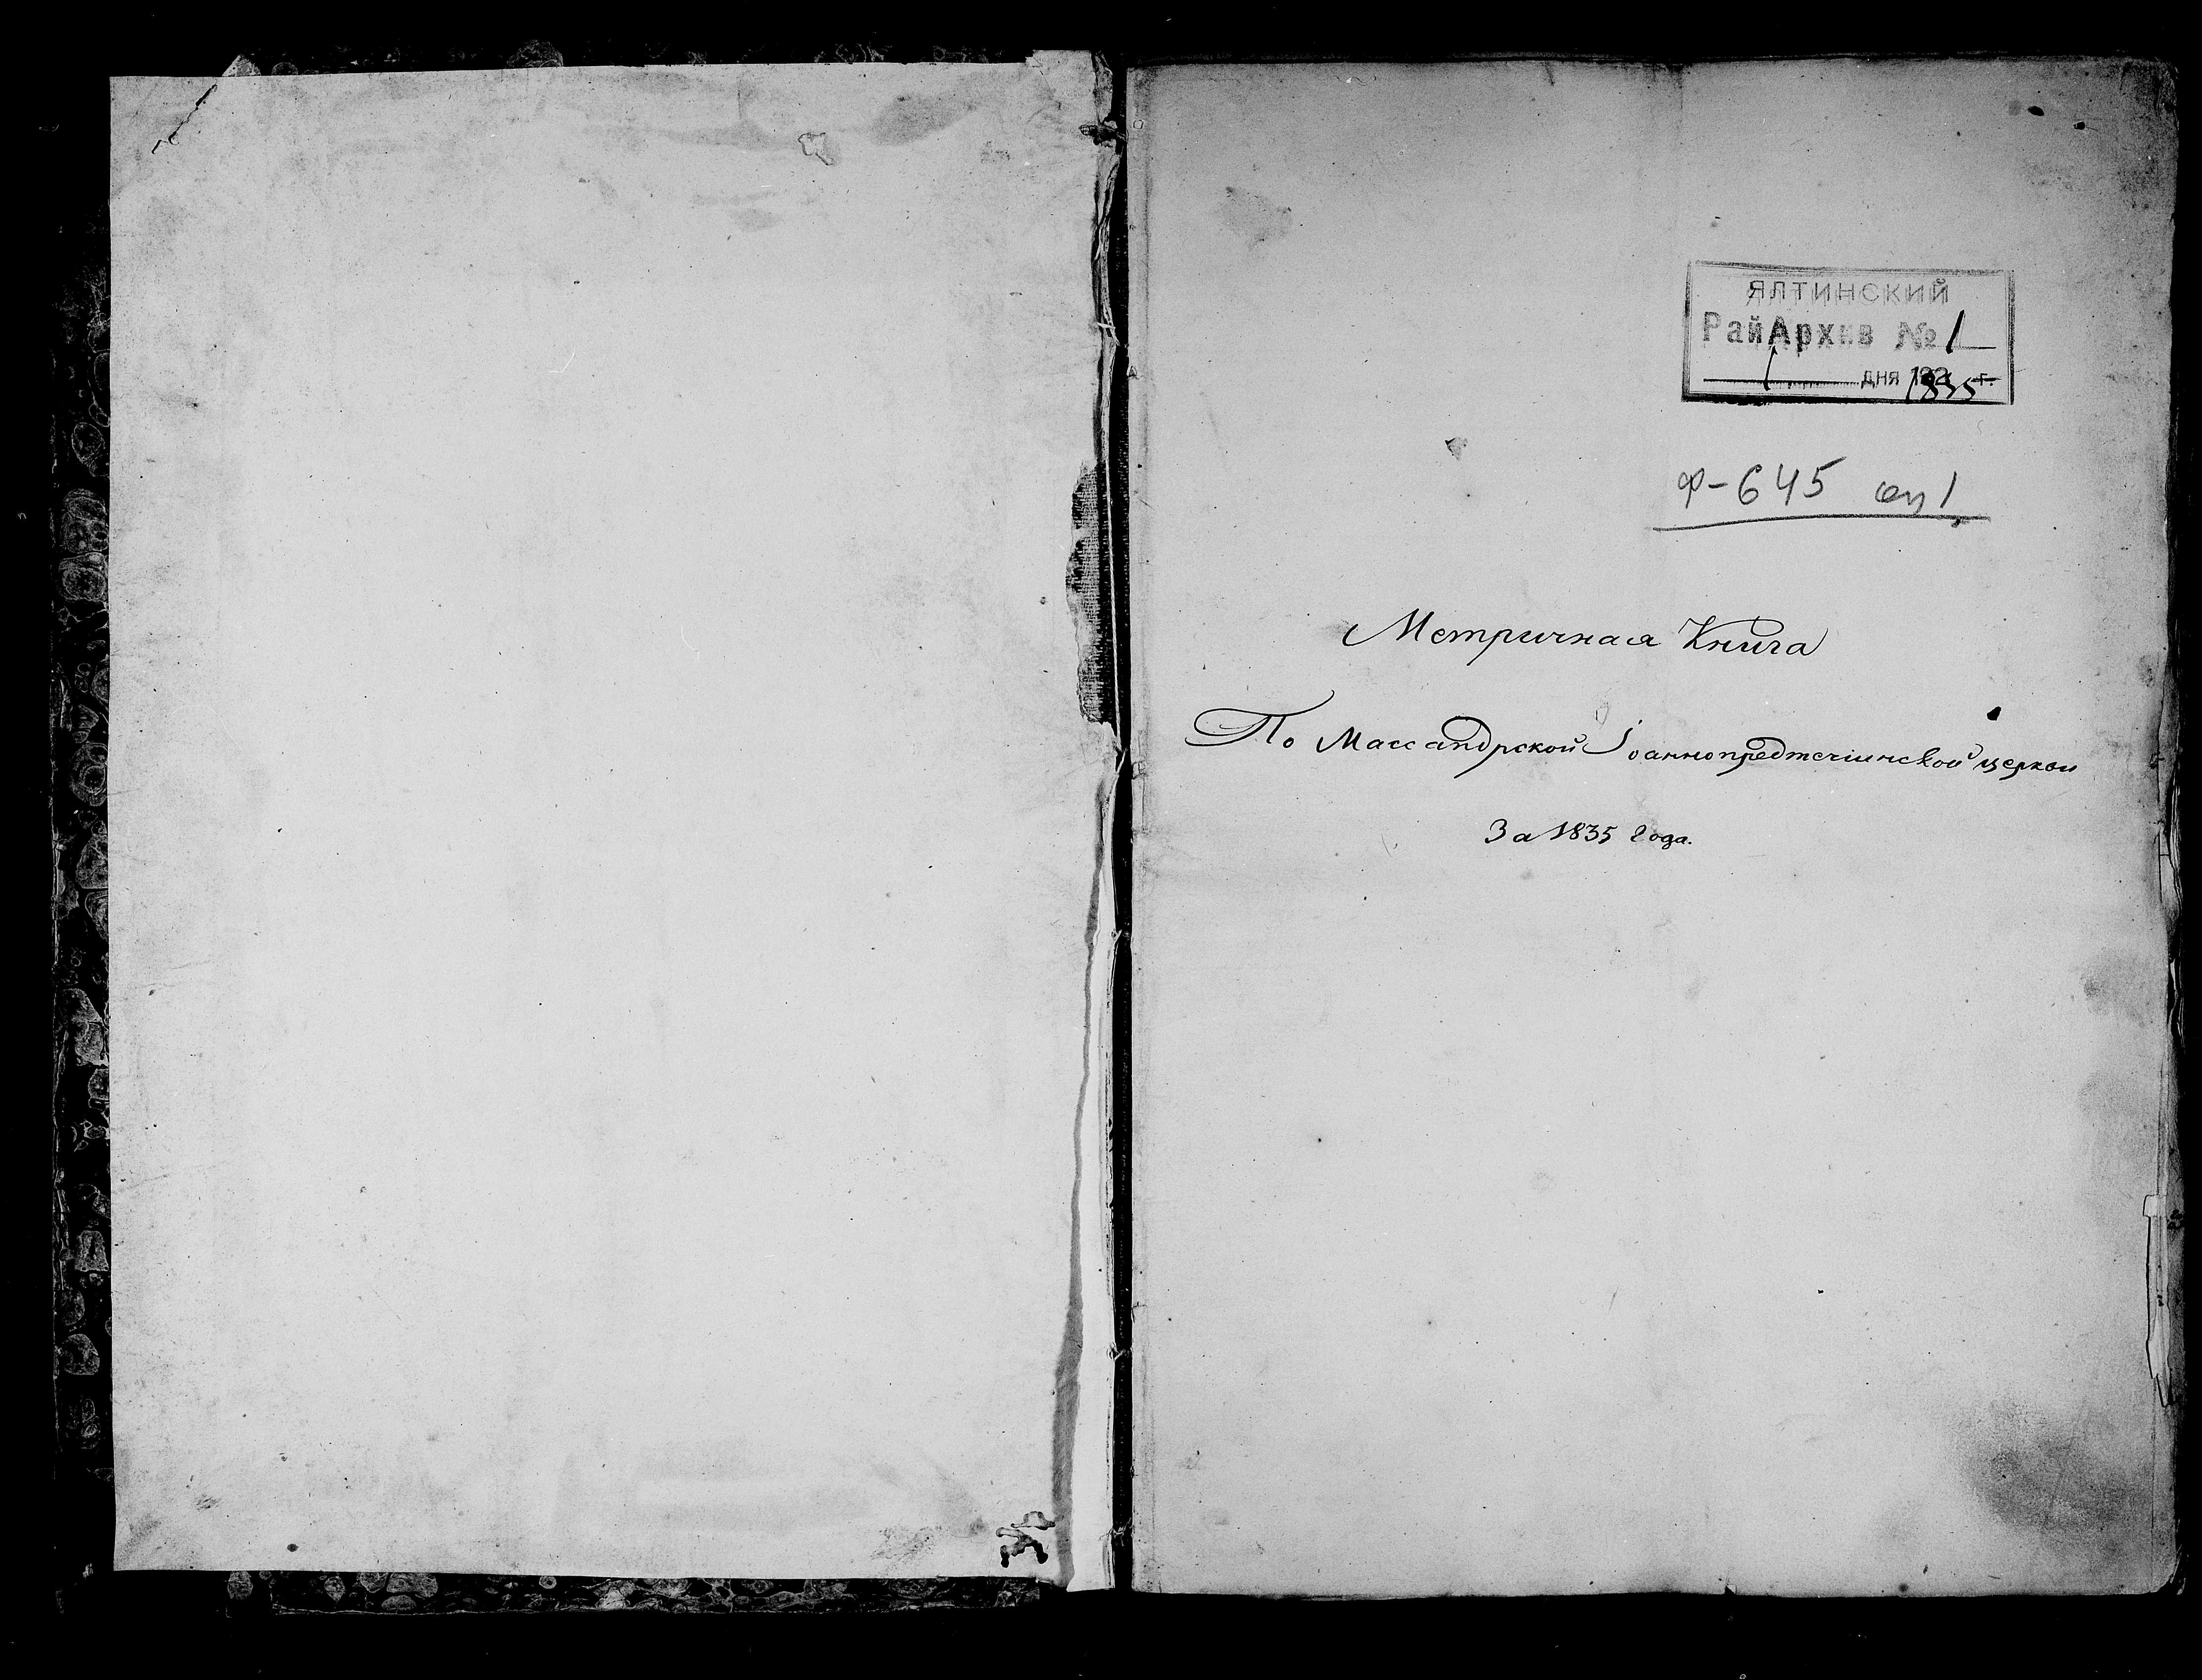 ЯЛТИНСКИЙ
РайАрхив № 1
1 дня 1835 г.
Ф-645 оп 1
Метричная Книга
По Массандрской Іоаннопредтечіинской церкви
За 1835 года.